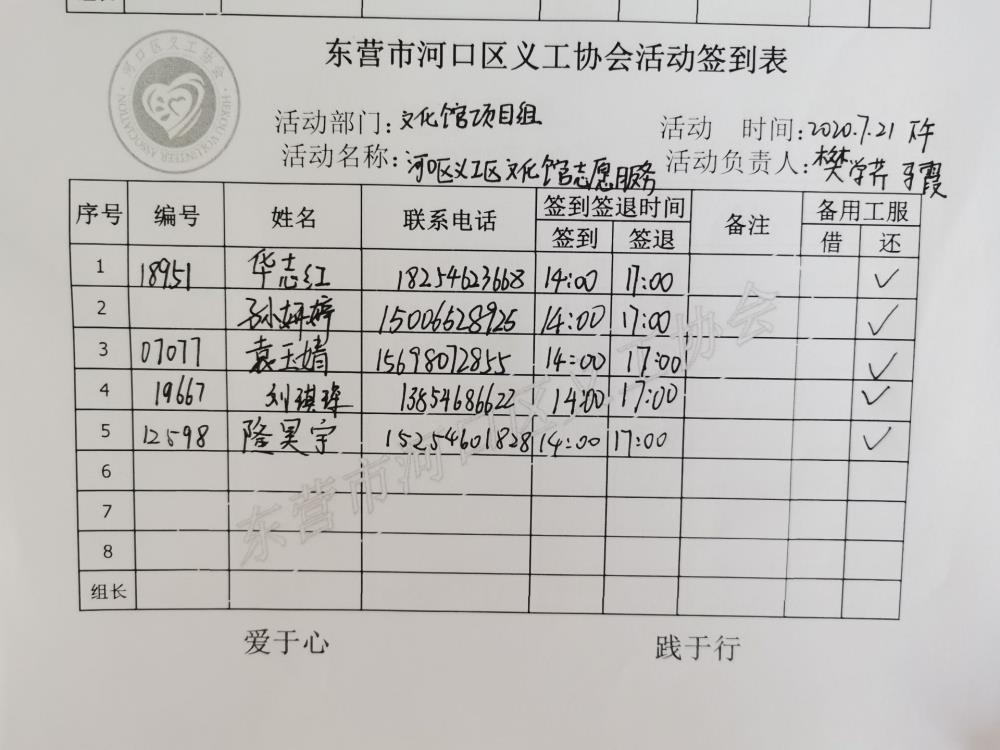 组长
东营市河口区义工协会活动签到表
河口区义工协会
HEKOU VOLUNTEER ASSOCIATION
活动部门：文化馆项目组
活动 时间：2020.7.21 下午
活动名称：河口区义工区文化馆志愿服务
活动负责人：樊学芹 于霞
序号 编号 姓名 联系电话 签到签退时间 备注 备用工服
签到 签退 借 还
1 18951 华志红 18254623668 14:00 17:00 ✓
2 孙妍婷 15006528925 14:00 17:00 ✓
3 07077 袁玉婧 15698072855 14:00 17:00 ✓
4 19667 刘琪琛 13854686622 14:00 17:00 ✓
5 12598 隆昊宇 15254601828 14:00 17:00 ✓
6
7
8
组长
东营市河口区义工协会
爱于心 践于行